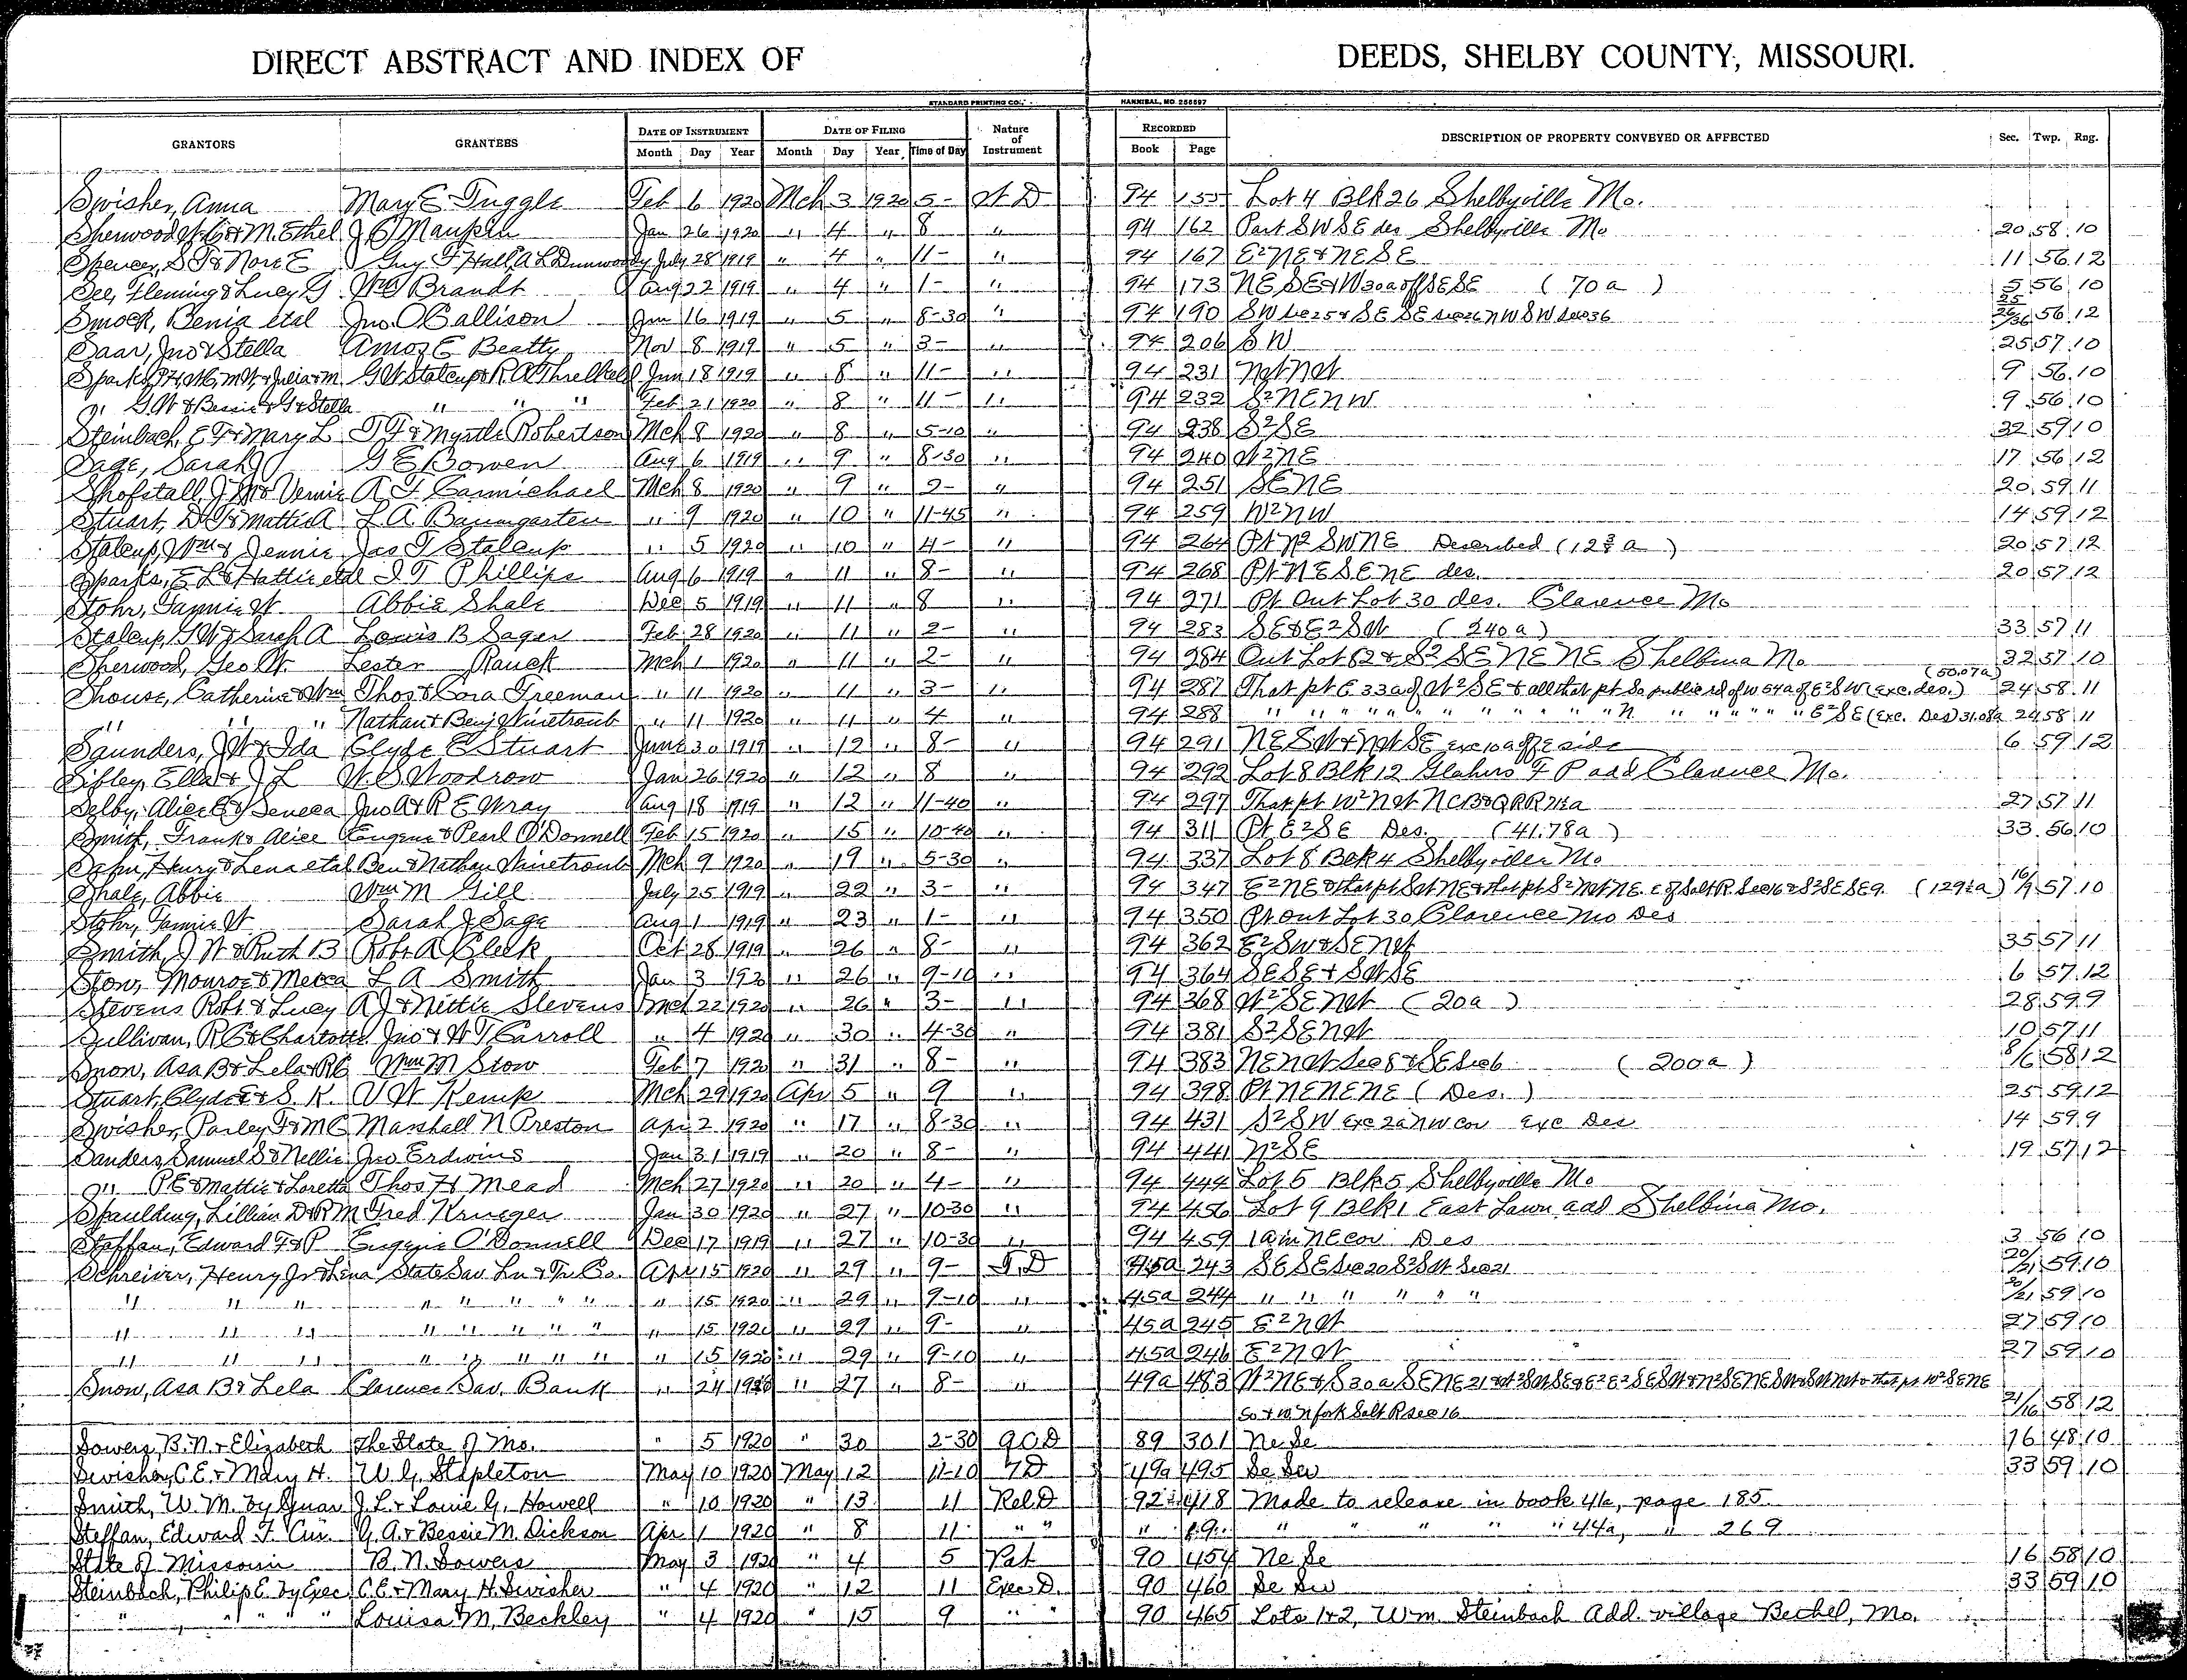 DIRECT ABSTRACT AND INDEX OF DEEDS, SHELBY COUNTY, MISSOURI.
STANDARD PRINTING CO., HANNIBAL, MO. 256597
GRANTORS GRANTEES DATE OF INSTRUMENT DATE OF FILING Nature of Instrument RECORDED DESCRIPTION OF PROPERTY CONVEYED OR AFFECTED Sec. Twp. Rng.
Month Day Year Month Day Year Time of Day Book Page
Swisher, Anna Mary E Tuggle Feb 6 1920 Mch 3 1920 5- W D 94 155 Lot 4 Blk 26 Shelbyville Mo.
Sherwood & M. Ethel J C Maupin Jan 26 1920 " 4 " 8 " 94 162 Part SW SE des Shelbyville Mo 20 58 10
Spencer, S T & Nora E Guy F Hall, A L Dunwoody July 28 1919 " 4 " 11- " 94 167 E2 NE & NE SE 11 56 12
See, Fleming & Lucy G Wm Brandt Aug 22 1919 " 4 " 1- " 94 173 NE SE & W 30a off SE SE (70 a) 5 56 10
Smock, Benia etal Jno. O Callison Jan 16 1919 " 5 " 8-30 " 94 190 SW Sec 25 & SE SE Sec 26 NW SW Sec 36 25/26/36 56 12
Saar, Jno & Stella Amos E Beatty Nov 8 1919 " 5 " 3- " 94 206 SW 25 57 10
Sparks, & Julia M G W Stalcup & R A Threlkeld Jun 18 1919 " 8 " 11- " 94 231 NW NW 9 56 10
" G W & Bessie & G & Stella " " " Feb 21 1920 " 8 " 11- " 94 232 S2 NE NW 9 56 10
Steinbach, E F & Mary L T F & Myrtle Robertson Mch 8 1920 " 8 " 5-10 " 94 238 S2 SE 32 59 10
Sage, Sarah J G E Bowen Aug 6 1919 " 9 " 8-30 " 94 240 W2 NE 17 56 12
Shofstall, J M & Vernie A F Carmichael Mch 8 1920 " 9 " 2- " 94 251 SE NE 20 59 11
Stuart, D & Mattie A L A Baumgarten " 9 1920 " 10 " 11-45 " 94 259 W2 NW 14 59 12
Stalcup, Wm & Jennie Jas T Stalcup " 5 1920 " 10 " 4- " 94 264 Pt N2 SW NE Described (12 a) 20 57 12
Sparks, E L & Hattie etal I T Phillips Aug 6 1919 " 11 " 8- " 94 268 Pt NE SE NE des. 20 57 12
Stohr, Fannie W Abbie Shale Dec 5 1919 " 11 " 8 " 94 271 Pt Out Lot 30 des. Clarence Mo
Stalcup, G W & Sarah A Louis B Sager Feb 28 1920 " 11 " 2- " 94 283 SE & E2 SW (240a) 33 57 11
Sherwood, Geo W. Lester Rauck Mch 1 1920 " 11 " 2- " 94 284 Out Lot 62 & S2 SE NE NE Shelbina Mo 32 57 10
Shouse, Catherine & Wm Thos & Cora Freeman " 11 1920 " 11 " 3- " 94 287 That pt E 33a of W2 SE & all that pt So public rd of W 54a of E2 SW (exc. des.) (50.07a) 24 58 11
" " " Nathan & Benj Winetroub " 11 1920 " 11 " 4 " 94 288 " " " " " " " " " N " " " " " E2 SE (Exc. Des) 31.08a 24 58 11
Saunders, J W & Ida Clyde E Stuart June 30 1919 " 12 " 8- " 94 291 NE SW & NW SE exc 10a off E side 6 59 12
Sibley, Ella & J L W. S Woodrow Jan 26 1920 " 12 " 8 " 94 292 Lot 8 Blk 12 F P add Clarence Mo.
Selby, Alice E & Seneca Jno A & R E Wray Aug 18 1919 " 12 " 11-40 " 94 297 That pt W2 NW N C B & Q R R 71½a 27 57 11
Smith, Frank & Alice Eugene & Pearl O'Donnell Feb 15 1920 " 15 " 10-40 " 94 311 Pt E2 SE Des. (41.78a) 33 56 10
Henry & Lena etal Ben & Nathan Winetroub Mch 9 1920 " 19 " 5-30 " 94 337 Lot 8 Blk 4 Shelbyville Mo
Shale, Abbie Wm M Gill July 25 1919 " 22 " 3- " 94 347 E2 NE & that pt SW NE & that pt S2 NW NE E of Salt R. Sec 16 & S2 SE SE 9 (129½a) 16/9 57 10
Stohr, Fannie W Sarah J Sage Aug 1 1919 " 23 " 1- " 94 350 Pt Out Lot 30 Clarence Mo Des
Smith, J W & Ruth B Robt A Cleek Oct 28 1919 " 26 " 8- " 94 362 E2 SW & SE NW 35 57 11
Stow, Monroe & Mecca L A Smith Jan 3 1920 " 26 " 9-10 " 94 364 SE SE & SW SE 6 57 12
Stevens Robt & Lucy A J & Nittie Stevens Mch 22 1920 " 26 " 3- " 94 368 W2 SE NW (20a) 28 59 9
Sullivan, R C & Charlotte Jno & W T Carroll " 4 1920 " 30 " 4-30 " 94 381 S2 SE NW 10 57 11
Snow, Asa B & Lela & R C Wm M Stow Feb 7 1920 " 31 " 8- " 94 383 NE NW Sec 8 & SE Sec 6 (200a) 8/6 58 12
Stuart, Clyde E & S. K. V W Kemp Mch 29 1920 Apr 5 " 9 " 94 398 Pt NE NE NE (Des.) 25 59 12
Swisher, Parley F & M C Marshall N Preston Apr 2 1920 " 17 " 8-30 " 94 431 S2 SW exc 2a NW cor exc Des 14 59 9
Sanders, Samuel S & Nellie Jno Erdwins Jan 31 1919 " 20 " 8- " 94 441 N2 SE 19 57 12
" P E & Mattie & Loretta Thos H Mead Mch 27 1920 " 20 " 4- " 94 444 Lot 5 Blk 5 Shelbyville Mo
Spaulding, Lillian D & R M Fred Krueger Jan 30 1920 " 27 " 10-30 " 94 456 Lot 9 Blk 1 East Lawn add Shelbina Mo.
Steffan, Edward F & P Eugenie O'Donnell Dec 17 1919 " 27 " 10-30 " 94 459 1a in NE cor Des 3 56 10
Schreiver, Henry Jr & Lena State Sav. Ln & Tr. Co. Apr 15 1920 " 29 " 9- T.D 45a 243 SE SE Sec 20 S2 SW Sec 21 20/21 59 10
" " " " " " " " " 15 1920 " 29 " 9-10 " 45a 244 " " " " " " 20/21 59 10
" " " " " " " " " 15 1920 " 29 " 9- " 45a 245 E2 NW 27 59 10
" " " " " " " " " 15 1920 " 29 " 9-10 " 45a 246 E2 NW 27 59 10
Snow, Asa B & Lela Clarence Sav. Bank " 24 1920 " 27 " 8- " 49a 483 W2 NE & S 30a SE NE 21 & W2 SW SE & E2 E2 SE SW & N2 SE NE SW & SW NW & that pt W2 SE NE
So & W N fork Salt R Sec 16 21/16 58 12
Sowers, B. N. & Elizabeth The State of Mo. " 5 1920 " 30 2-30 Q C D 89 301 Ne Se 16 48 10
Swisher, C. E. & Mary H. W. G. Stapleton May 10 1920 May 12 11-10 T D 49a 495 Se Sw 33 59 10
Smith, W. M. by Guar J. L. & Louie G. Howell " 10 1920 " 13 11 Rel. D 92 418 Made to release in book 41a, page 185
Steffan, Edward F. Cur. G. A. & Bessie M. Dickson Apr 1 1920 " 8 11 " " " " " " " " 44a, " 269
State of Missouri B. N. Sowers May 3 1920 " 4 5 Pat 90 454 Ne Se 16 58 10
Steinbach, Philip E. by Exec C. E. & Mary H. Swisher " 4 1920 " 12 11 Exec. D. 90 460 Se Sw 33 59 10
" " " " " Louisa M. Beckley " 4 1920 " 15 9 " " 90 465 Lots 1 & 2, Wm. Steinbach Add. village Bethel, Mo.